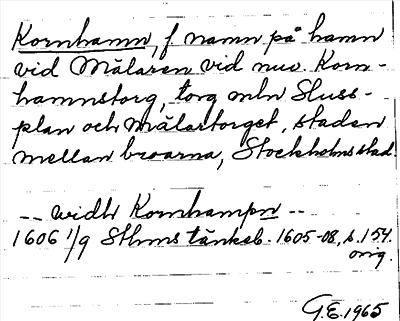 Kornhamn, f namn på hamn
vid Mälaren vid nuv. Korn-
hamnstorg, torg mln Sluss-
plan och Mälartorget, staden
mellan broarna, Stockholms stad.
-- widh Kornhampn --
1606 1/9 Sthms tänkeb. 1605-08, s. 154.
orig.
G.E. 1965